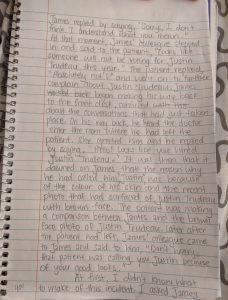 James replied by saying, "Sorry, I don't
think I understand what you mean."
At that moment, James' colleague stepped
in and said to the patient, "Looks like
someone will not be voting for Justin
Trudeau this year". The patient replied,
"Absolutely not!" and went on to further
complain about Justin Trudeau. James
then ending his way back
to the front desk, confused with the
about the conversations that had just taken
place. On his way back, he heard the doctor
enter the room where he had left the
patient. She greeted him and he replied
by saying, "Looks like you hired
Justin Trudeau." It was then that it
dawned on James that the reason why
he had called him Justin was because
of the colour of his skin and the recent
photo that had surfaced of Justin Trudeau
with brown-face. The patient was making
a comparison between James and the brown
face photo of Justin Trudeau. Later after
the patient had left, James' colleague came
to James and said to him, "Don't worry,
that patient was calling you Justin because
of your good looks."
At first, I didn't know what
to make of this incident. I asked James